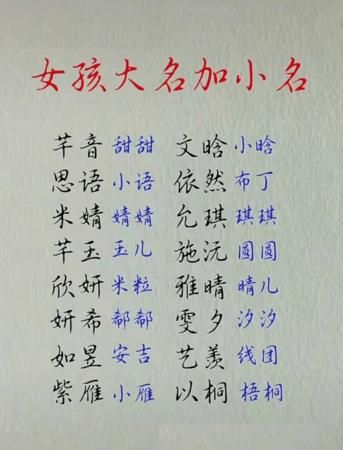 女孩大名加小名
芊音 甜甜 文晗 小晗
思语 小语 依然 布丁
米婧 婧婧 允琪 琪琪
芊玉 玉儿 施沅 圆圆
欣妍 米粒 雅晴 晴儿
妍希 郗郗 雯夕 汐汐
如昱 安吉 艺羡 线团
紫雁 小雁 以桐 梧桐